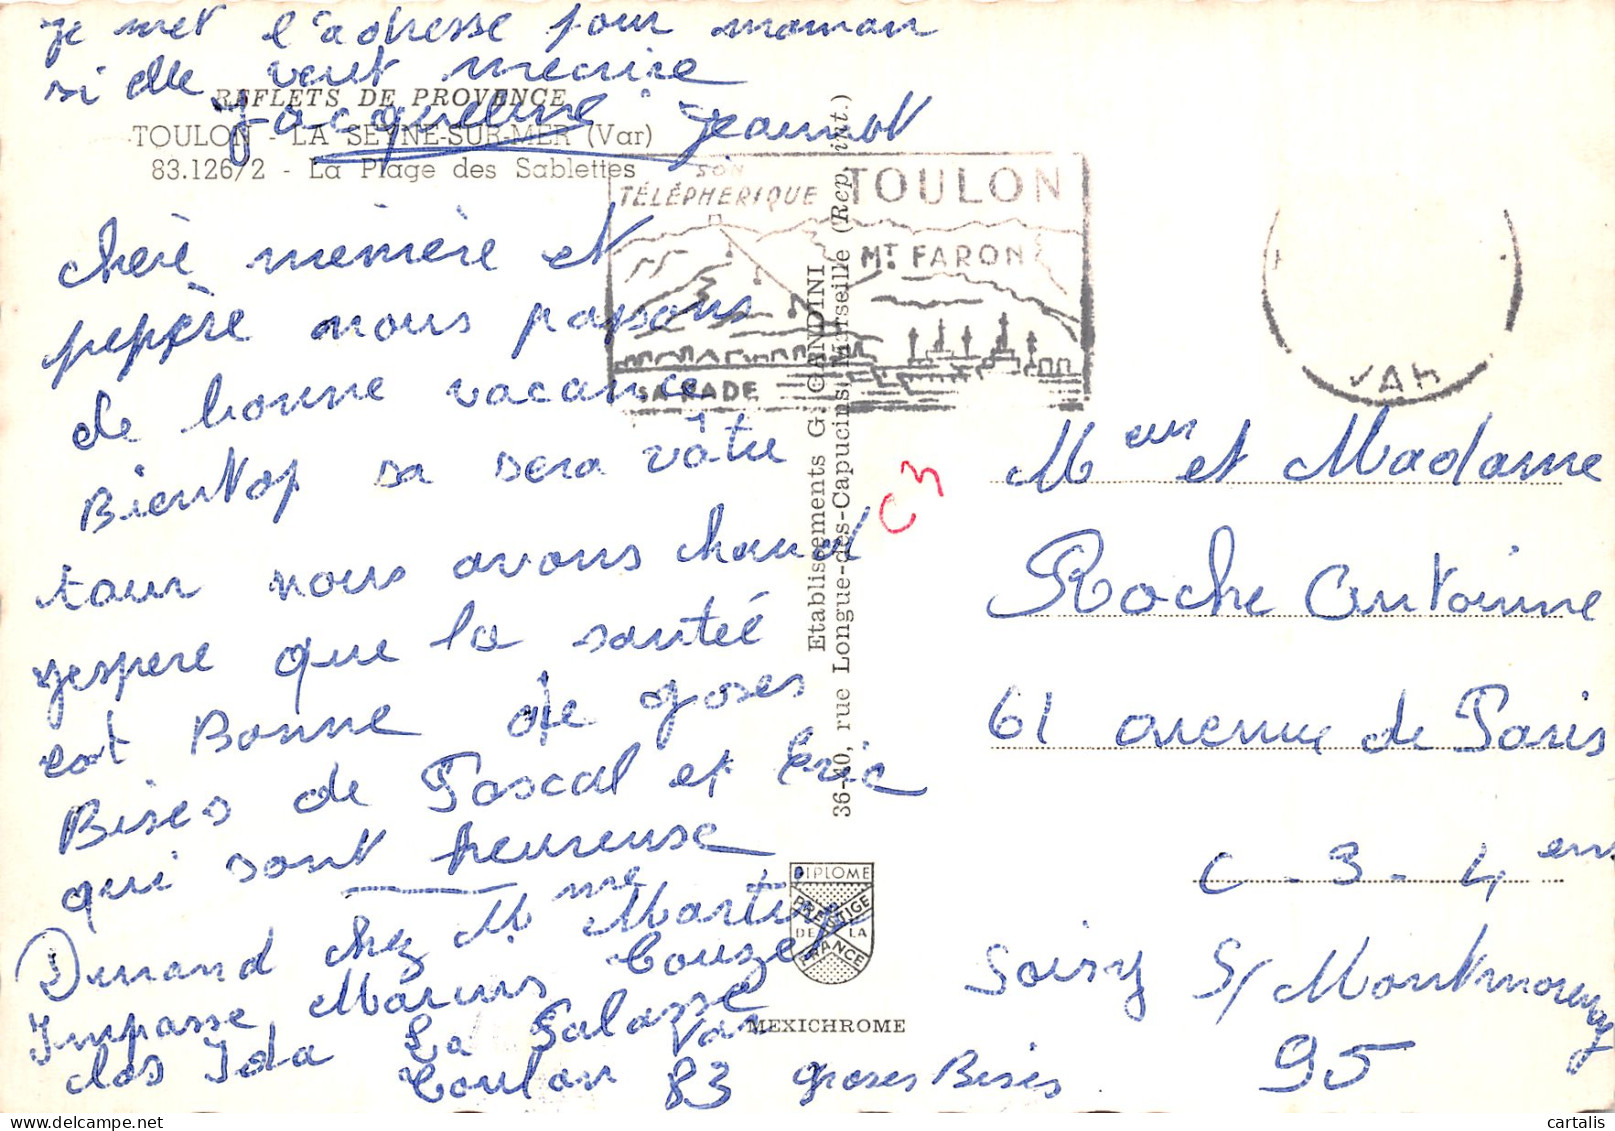 je met l'adresse pour maman
si elle veut mecrire
Jacqueline Jeannot
REFLETS DE PROVENCE
TOULON - LA SEYNE-SUR-MER (Var)
83.126/2 - La Plage des Sablettes
chère mémère et
pepère nous passons
de bonne vacance
Bientop sa sera vâtre
tour nous avons chaud
jespere que la santée
est Bonne de groses
Bises de Pascal et Eric
qui sont heureuse
Durand chez Mme Martin
Impasse Marius Couzet
clos Ida La Palasse
Toulon 83 Var
groses Bises
SON
TÉLÉPHERIQUE
TOULON
MT FARON
SA RADE
VAR
Etablissements G. GANDINI
36-40, rue Longue-des-Capucins, Marseille (Rep. int.)
C3
DIPLOME
PRESTIGE
DE LA
FRANCE
MEXICHROME
Meur et Madame
Roche Antoinne
61 avenue de Paris
C - 3 - 4 em
Soisy S/ Montmorency
95
cartalis